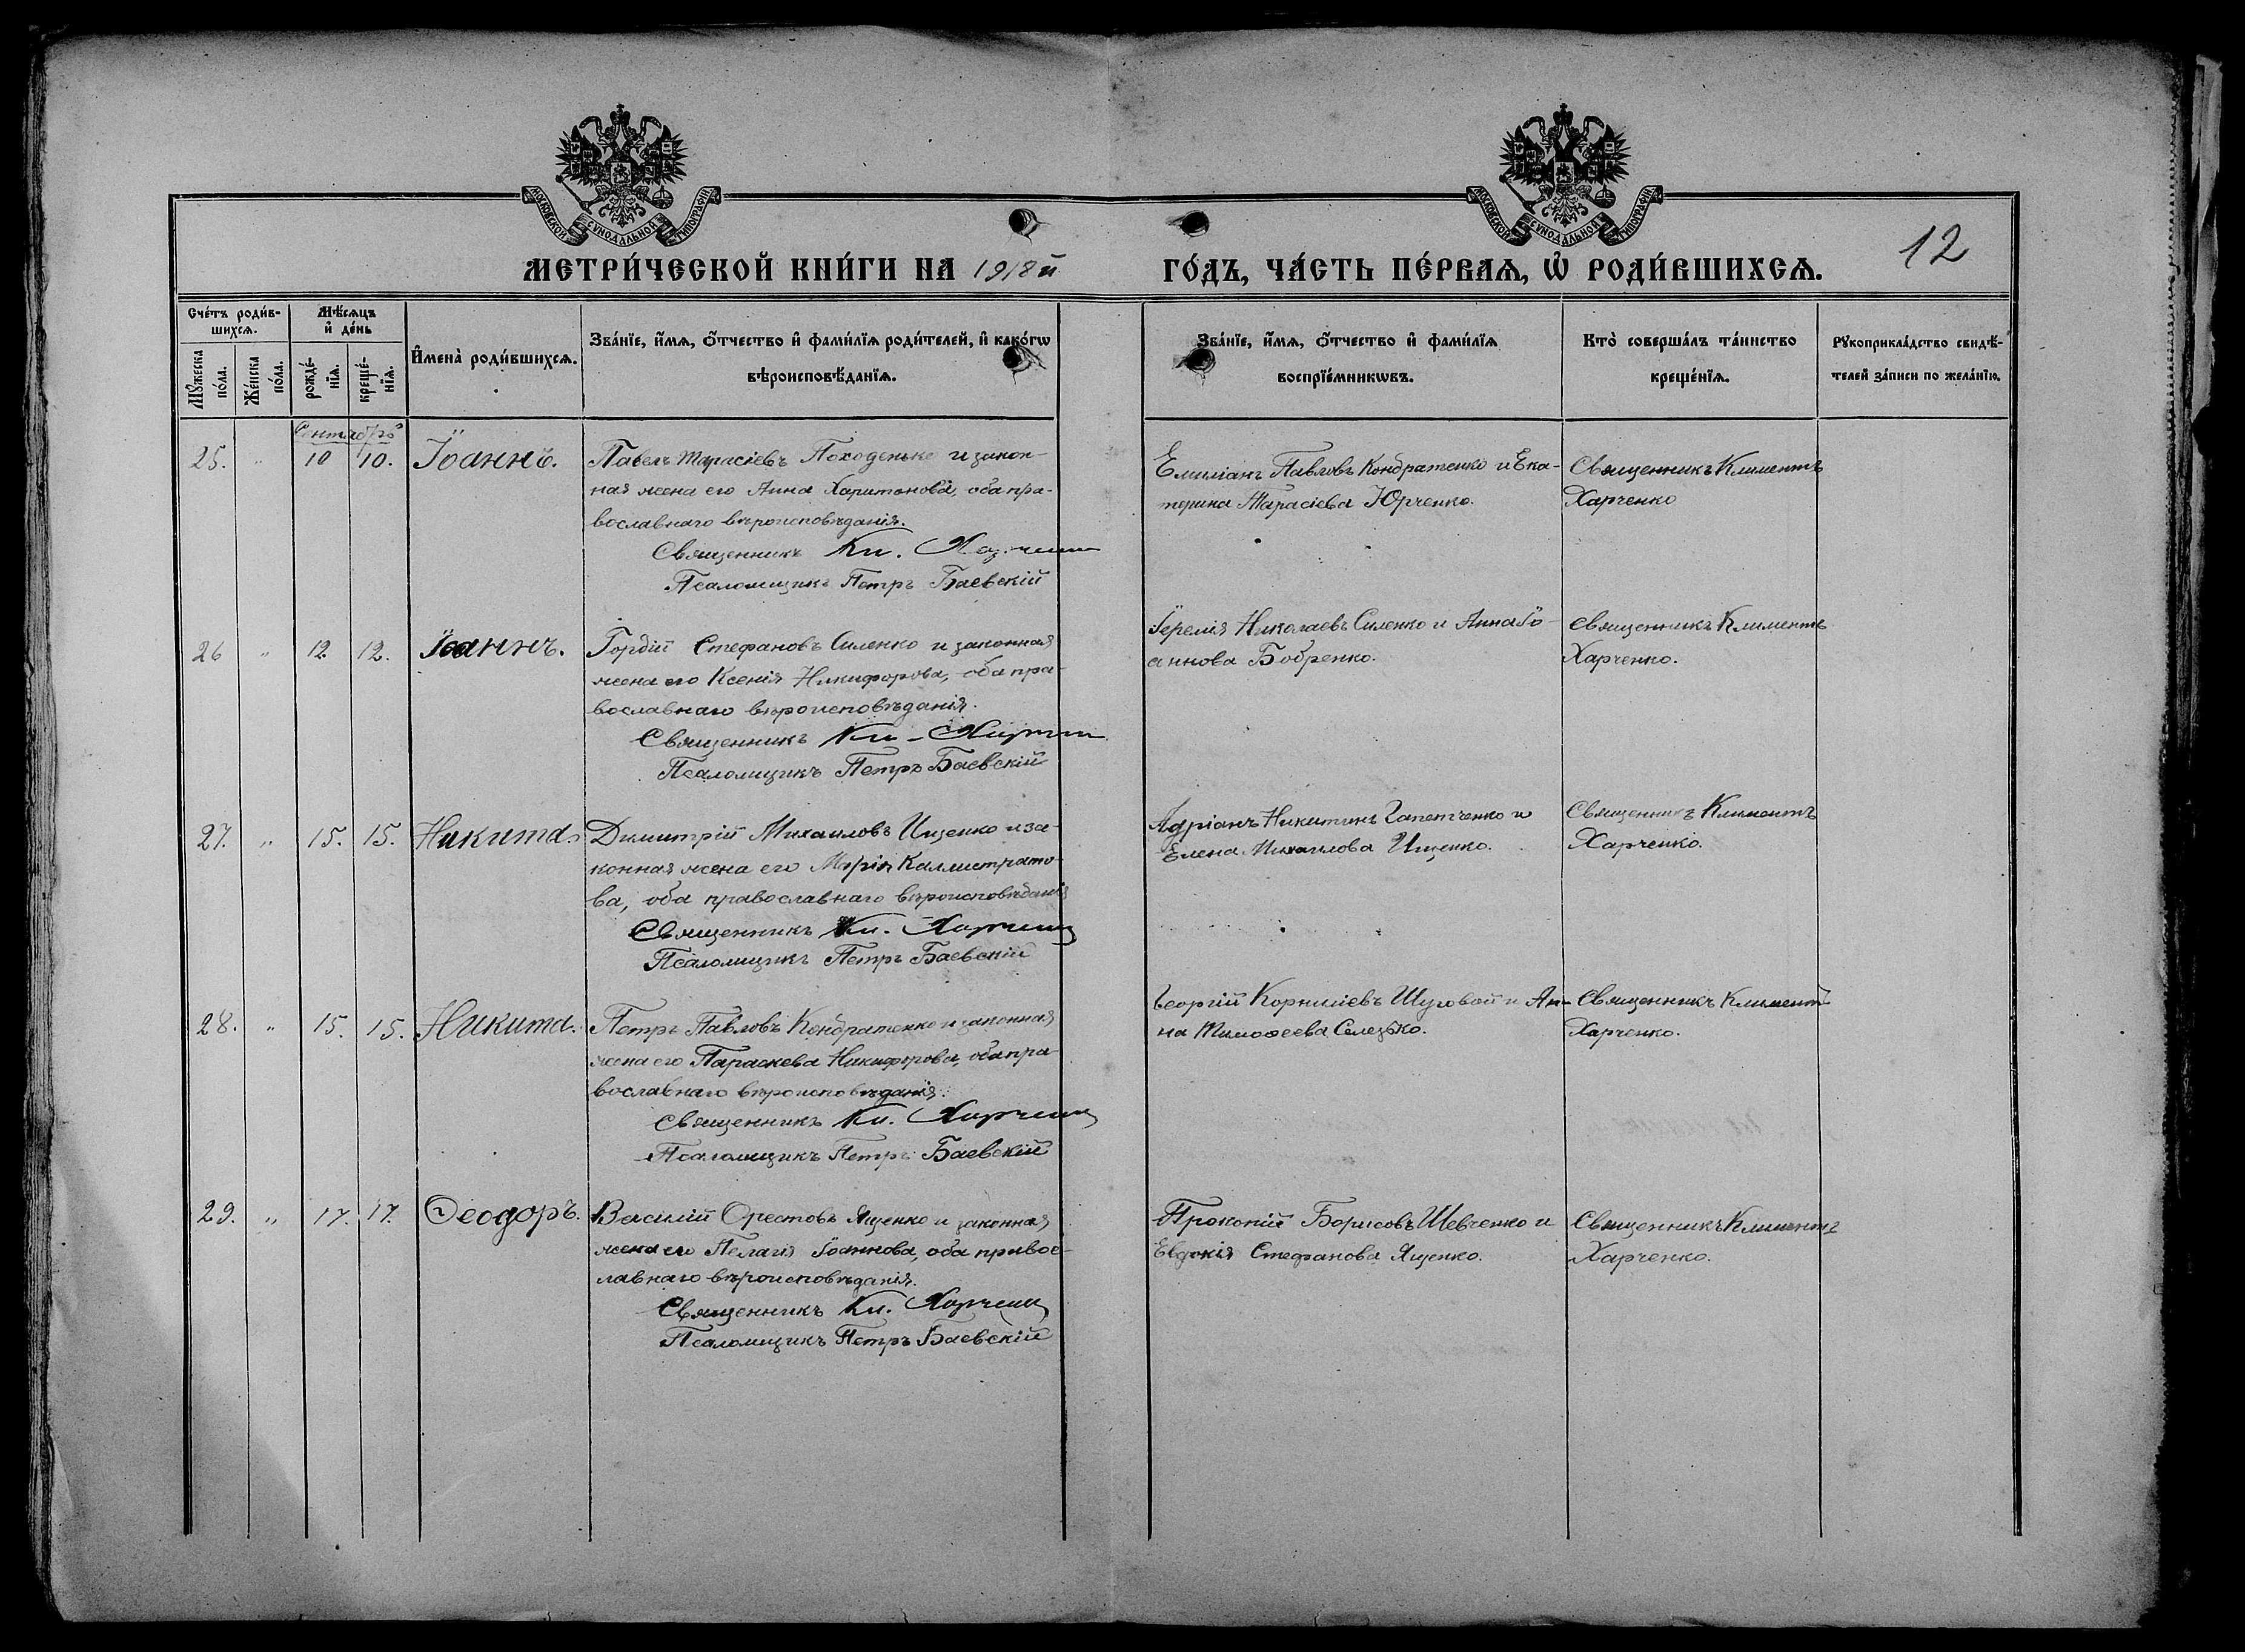 МОСКОВСКОЙ СѴНОДАЛЬНОЙ ТИПОГРАФІИ
МОСКОВСКОЙ СѴНОДАЛЬНОЙ ТИПОГРАФІИ
12
МЕТРИ́ЧЕСКОЙ КНИ́ГИ НА 1918й ГО́ДЪ, ЧА́СТЬ ПЕ́РВАѦ, Ѽ РОДИ́ВШИХСѦ.
Сче́тъ роди́в-
шихсѧ.
Мꙋ́жеска
по́ла.
Же́нска
по́ла.
Мѣ́сѧцъ
и҆ де́нь
рожде́-
нїѧ.
креще́-
нїѧ.
И҆мена̀ роди́вшихсѧ.
Зва́нїе, и҆́мѧ, ѻ҆́тчество и҆ фами́лїѧ роди́телей, и҆ како́гѡ
вѣроисповѣ́данїѧ.
Зва́нїе, и҆́мѧ, ѻ҆́тчество и҆ фами́лїѧ
воспрїе́мникѡвъ.
Кто̀ соверша́лъ та́инство
креще́нїѧ.
Рꙋкоприкла́дство свидѣ́-
телей за́писи по жела́нїю.
Сентябрь
25. " 10 10. Іоаннъ.
Павелъ Тарасіевъ Походенько и закон-
ная жена его Анна Харитонова, оба пра-
вославнаго вѣроисповѣданія.
Священникъ Кл. Харченко
Псаломщикъ Петръ Баевскій
Емиліанъ Павловъ Кондратенко и Ека-
терина Тарасіева Юрченко.
Священникъ Климентъ
Харченко
26 " 12 12. Іоаннъ.
Гордій Стефановъ Силенко и законная
жена его Ксенія Никифорова, оба пра-
вославнаго вѣроисповѣданія.
Священникъ Кл. Харченко
Псаломщикъ Петръ Баевскій
Іеремія Николаевъ Силенко и Анна Іо-
аннова Бобренко.
Священникъ Климентъ
Харченко.
27. " 15. 15. Никита.
Димитрій Михаиловъ Ищенко и за-
конная жена его Марія Каллистрато-
ва, оба православнаго вѣроисповѣданія
Священникъ Кл. Харченко
Псаломщикъ Петръ Баевскій
Адріанъ Никитинъ Гапетченко и
Елена Михаилова Ищенко.
Священникъ Климентъ
Харченко.
28. " 15. 15. Никита.
Петръ Павловъ Кондратенко и законная
жена его Параскева Никифорова, оба пра-
вославнаго вѣроисповѣданія.
Священникъ Кл. Харченко
Псаломщикъ Петръ Баевскій
Георгій Корниліевъ Шуговой и Ан-
на Тимоѳеева Селезько.
Священникъ Климентъ
Харченко.
29. " 17. 17. Ѳеодоръ.
Василій Орестовъ Ященко и законная
жена его Пелагія Іоаннова, оба правос-
лавнаго вѣроисповѣданія.
Священникъ Кл. Харченко
Псаломщикъ Петръ Баевскій
Прокопій Борисовъ Шевченко и
Евдокія Стефанова Ященко.
Священникъ Климентъ
Харченко.